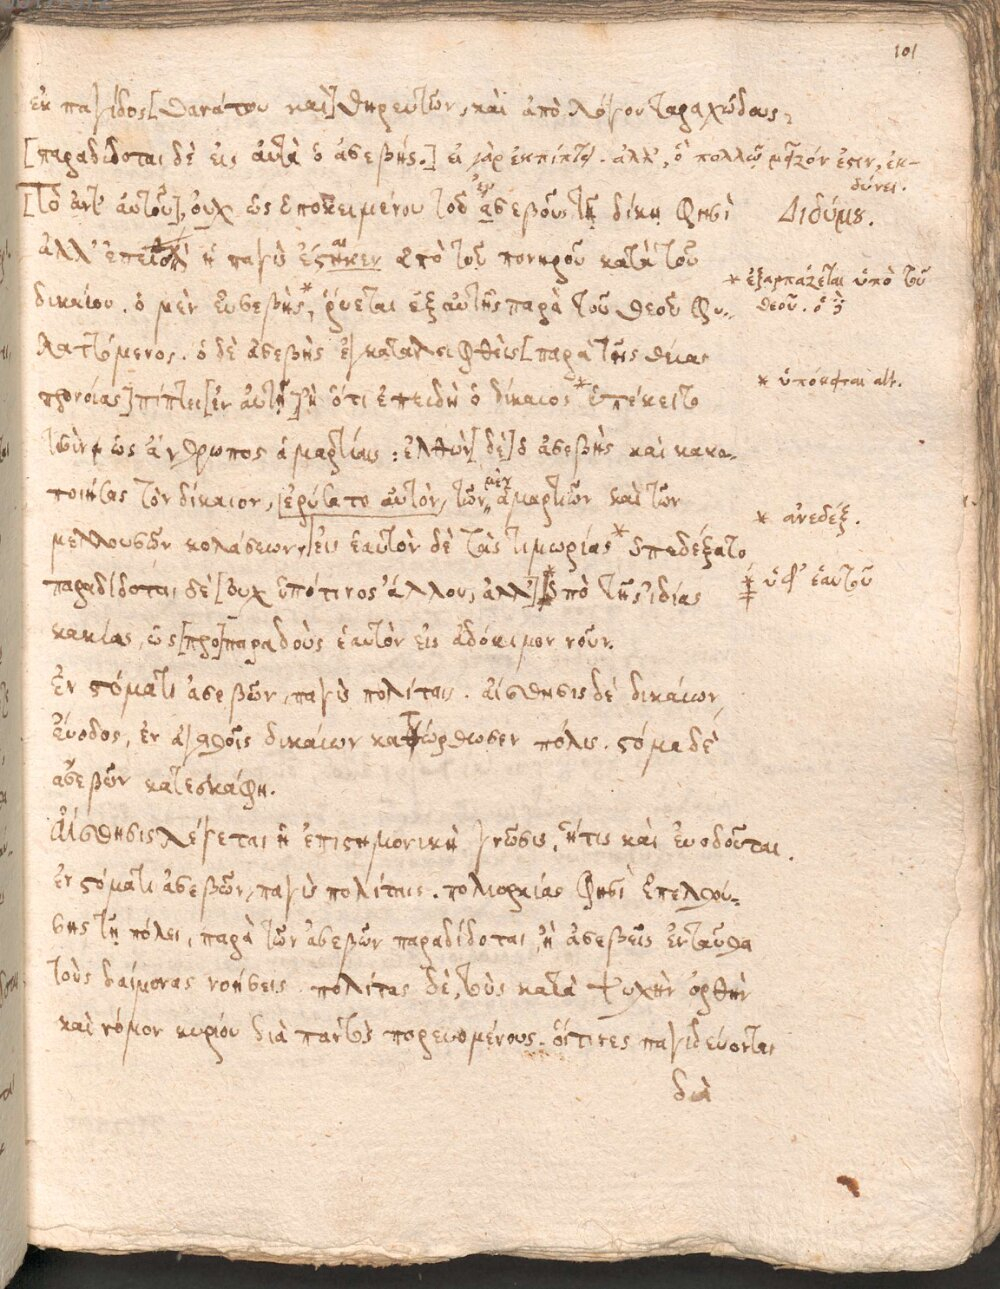 101
ἐκ παγίδος [θανάτου καὶ] θηρευτῶν, καὶ ἀπὸ λόγου ταραχώδους,
[παραδίδοται δὲ εἰς αὐτὰ ὁ ἀσεβής.] εἰ γὰρ ἐκπίπτει. ἀλλ', ὃ πολλῷ μεῖζόν ἐστιν, ἐκ-
δύνει.
[Τὸ ἀντ' αὐτοῦ], οὐχ ὡς ὑποκειμένου τοῦ ἀσεβοῦς τῇ δίκῃ φησὶ
Διδύμου.
ἀλλ' ἐπειδὴ ἡ παγὶς ἔστηκεν ὑπὸ τοῦ πονηροῦ κατὰ τοῦ
* ἐξαρπάζεται ὑπὸ τοῦ
θεοῦ.
δικαίου. ὁ μὲν εὐσεβὴς*, ῥύεται ἐξ αὐτῆς παρὰ τοῦ θεοῦ φυ-
λαττόμενος. ὁ δὲ ἀσεβὴς ἐγκαταλειφθεὶς [παρὰ τῆς θείας
προνοίας] πίπτει [ἐν αὐτῇ] ἢ ὅτι ἐπειδὴ ὁ δίκαιος * ὑπέκειτο
* ὑπόκειται alt.
ὡς ἄνθρωπος ἁμαρτίαις: ἐλθὼν [δὲ] ὁ ἀσεβὴς καὶ κακο-
ποιήσας τὸν δίκαιον, ἐρύσατο αὐτὸν, τῶν μὲν ἁμαρτιῶν καὶ τῶν
μελλουσῶν κολάσεων, εἰς ἑαυτὸν δὲ τὰς τιμωρίας * ὑπεδέξατο
* ἀνεδέξ.
παραδίδοται δὲ [οὐχ ὑπό τινος ἄλλου, ἀλλ'] ὑπὸ τῆς ἰδίας
ὑφ' ἑαυτοῦ
κακίας, ὡς [προ]παραδοὺς ἑαυτὸν εἰς ἀδόκιμον νοῦν.
Ἐν στόματι ἀσεβῶν, παγὶς πολίταις. αἴσθησις δὲ δικαίων,
εὔοδος, ἐν ἀγαθοῖς δικαίων κατώρθωσεν πόλις. στόμα δὲ
ἀσεβῶν κατεσκάφη.
Αἴσθησις λέγεται ἡ ἐπιστημονικὴ γνῶσις, ἥτις καὶ εὐοδοῦται.
Ἐν στόματι ἀσεβῶν, παγὶς πολίταις. πολιορκίας φησὶ ἐπελθού-
σης τῇ πόλει, παρὰ τῶν ἀσεβῶν παραδίδοται, ἢ ἀσεβεῖς ἐνταῦθα
τοὺς δαίμονας νοήσεις. πολίτας δὲ, τοὺς κατὰ ψυχὴν ὀρθὴν
καὶ νόμον κυρίου διὰ παντὸς πορευομένους. οἵτινες παγιδεύονται
διὰ